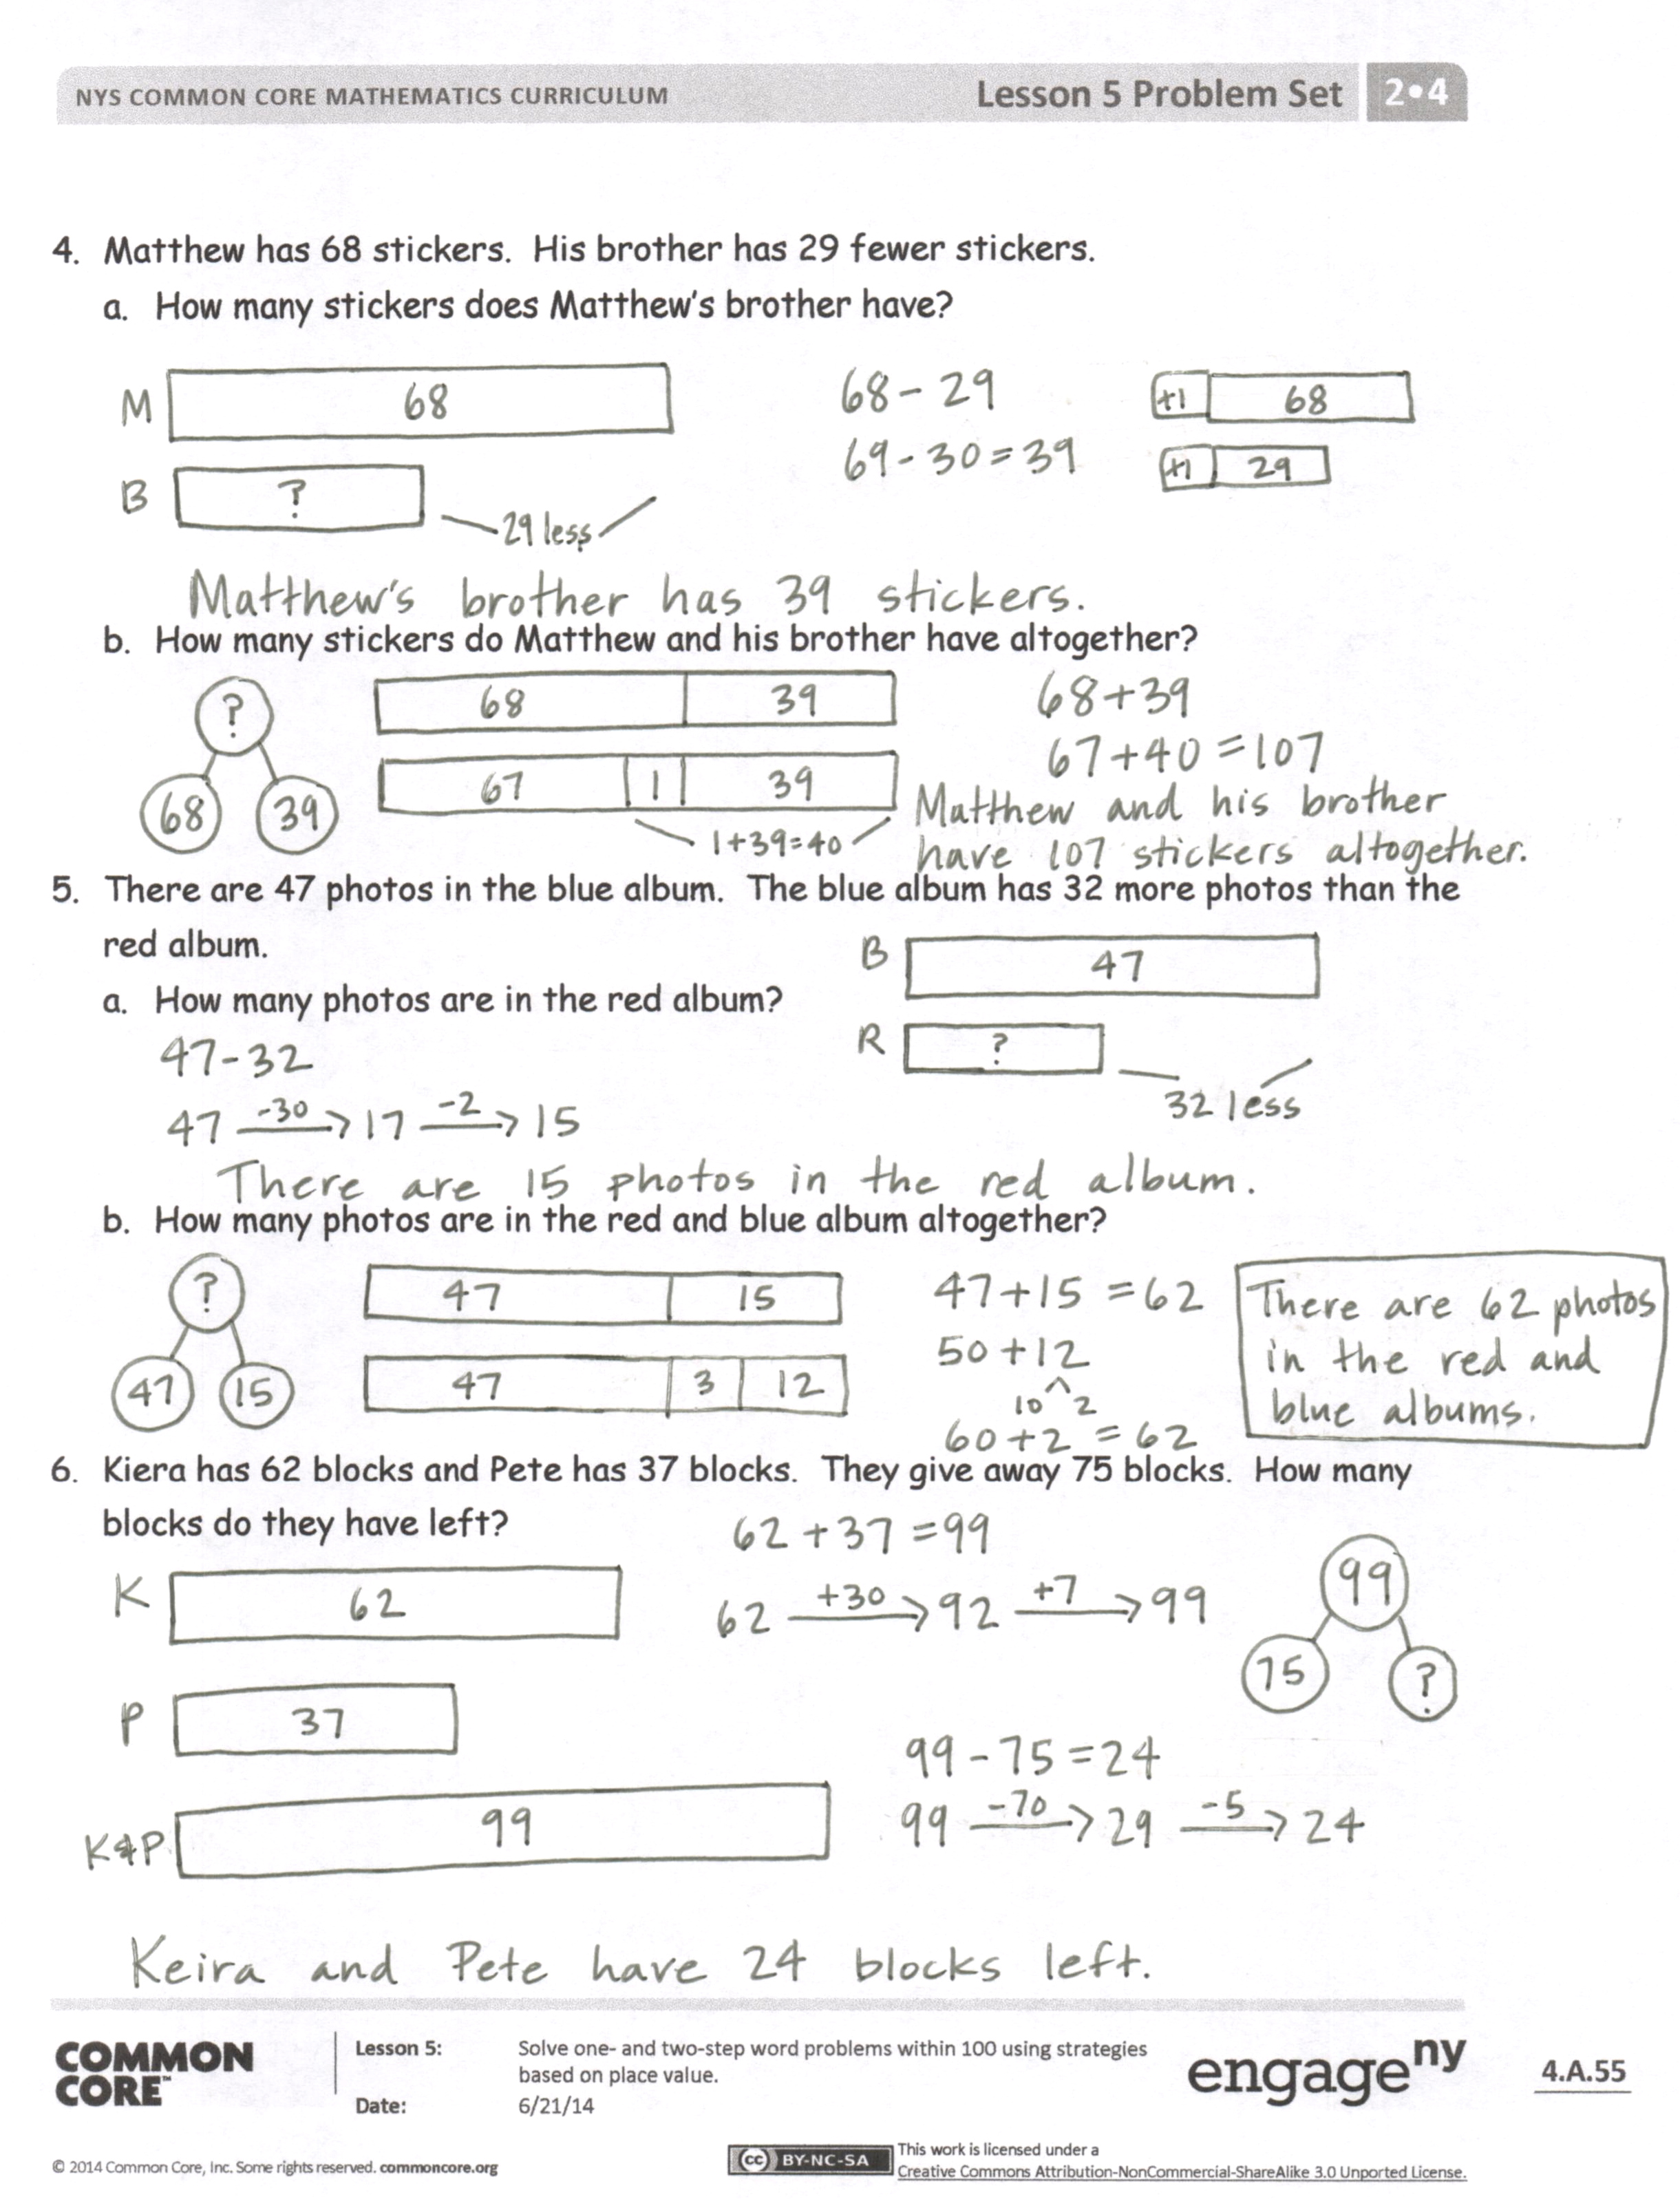 NYS COMMON CORE MATHEMATICS CURRICULUM Lesson 5 Problem Set 2•4
4. Matthew has 68 stickers. His brother has 29 fewer stickers.
a. How many stickers does Matthew's brother have?
M 68 68 - 29 +1 68
69 - 30 = 39
B ? +1 29
29 less
Matthew's brother has 39 stickers.
b. How many stickers do Matthew and his brother have altogether?
? 68 39 68 + 39
67 + 40 = 107
68 39 67 1 39
Matthew and his brother
1 + 39 = 40
have 107 stickers altogether.
5. There are 47 photos in the blue album. The blue album has 32 more photos than the
red album.
B 47
a. How many photos are in the red album?
47 - 32 R ?
47 -30→ 17 -2→ 15 32 less
There are 15 photos in the red album.
b. How many photos are in the red and blue album altogether?
? 47 15 47 + 15 = 62 There are 62 photos
50 + 12 in the red and
47 15 47 3 12 10 2 blue albums.
60 + 2 = 62
6. Kiera has 62 blocks and Pete has 37 blocks. They give away 75 blocks. How many
blocks do they have left?
62 + 37 = 99
K 62 62 +30→ 92 +7→ 99 99
75 ?
P 37
99 - 75 = 24
K&P 99 99 -70→ 29 -5→ 24
Keira and Pete have 24 blocks left.
COMMON
CORE™
Lesson 5: Solve one- and two-step word problems within 100 using strategies
based on place value.
Date: 6/21/14
engage ny
4.A.55
© 2014 Common Core, Inc. Some rights reserved. commoncore.org
cc BY-NC-SA
This work is licensed under a
Creative Commons Attribution-NonCommercial-ShareAlike 3.0 Unported License.